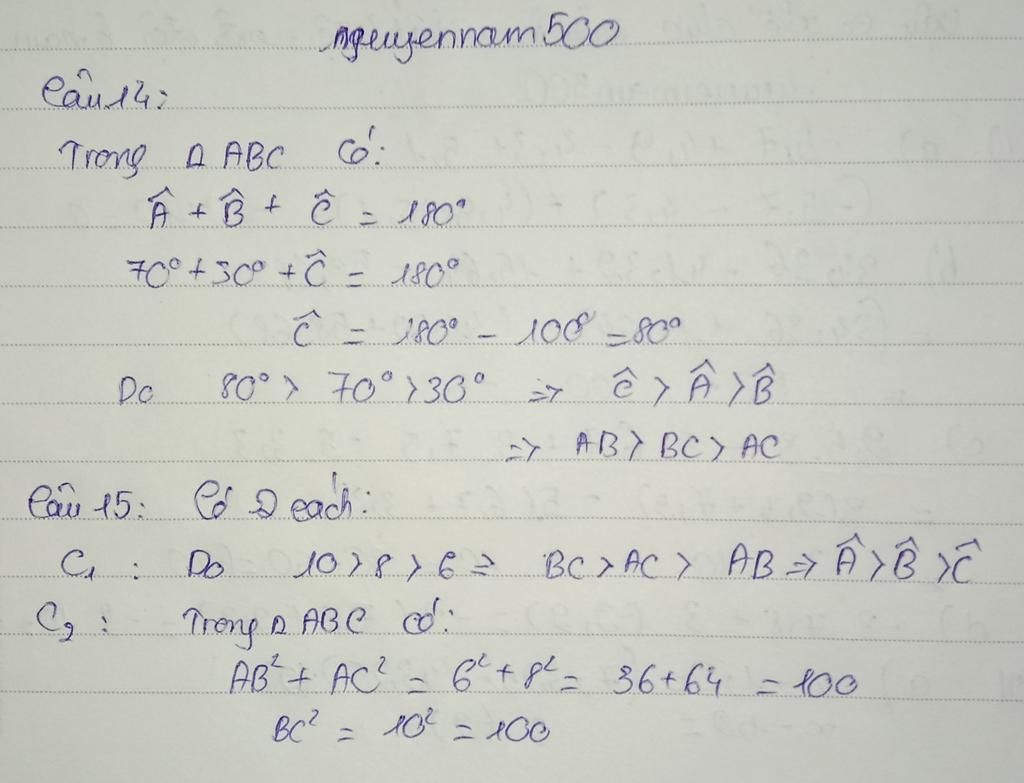 nguyennam500
Câu 14:
Trong Δ ABC Có:
Â + B̂ + Ĉ = 180°
70° + 30° + Ĉ = 180°
Ĉ = 180° - 100° = 80°
Do 80° > 70° > 30° => Ĉ > Â > B̂
=> AB > BC > AC
Câu 15: Có 2 cách:
C₁ : Do 10 > 8 > 6 => BC > AC > AB => Â > B̂ > Ĉ
C₂ : Trong Δ ABC có:
AB² + AC² = 6² + 8² = 36 + 64 = 100
BC² = 10² = 100